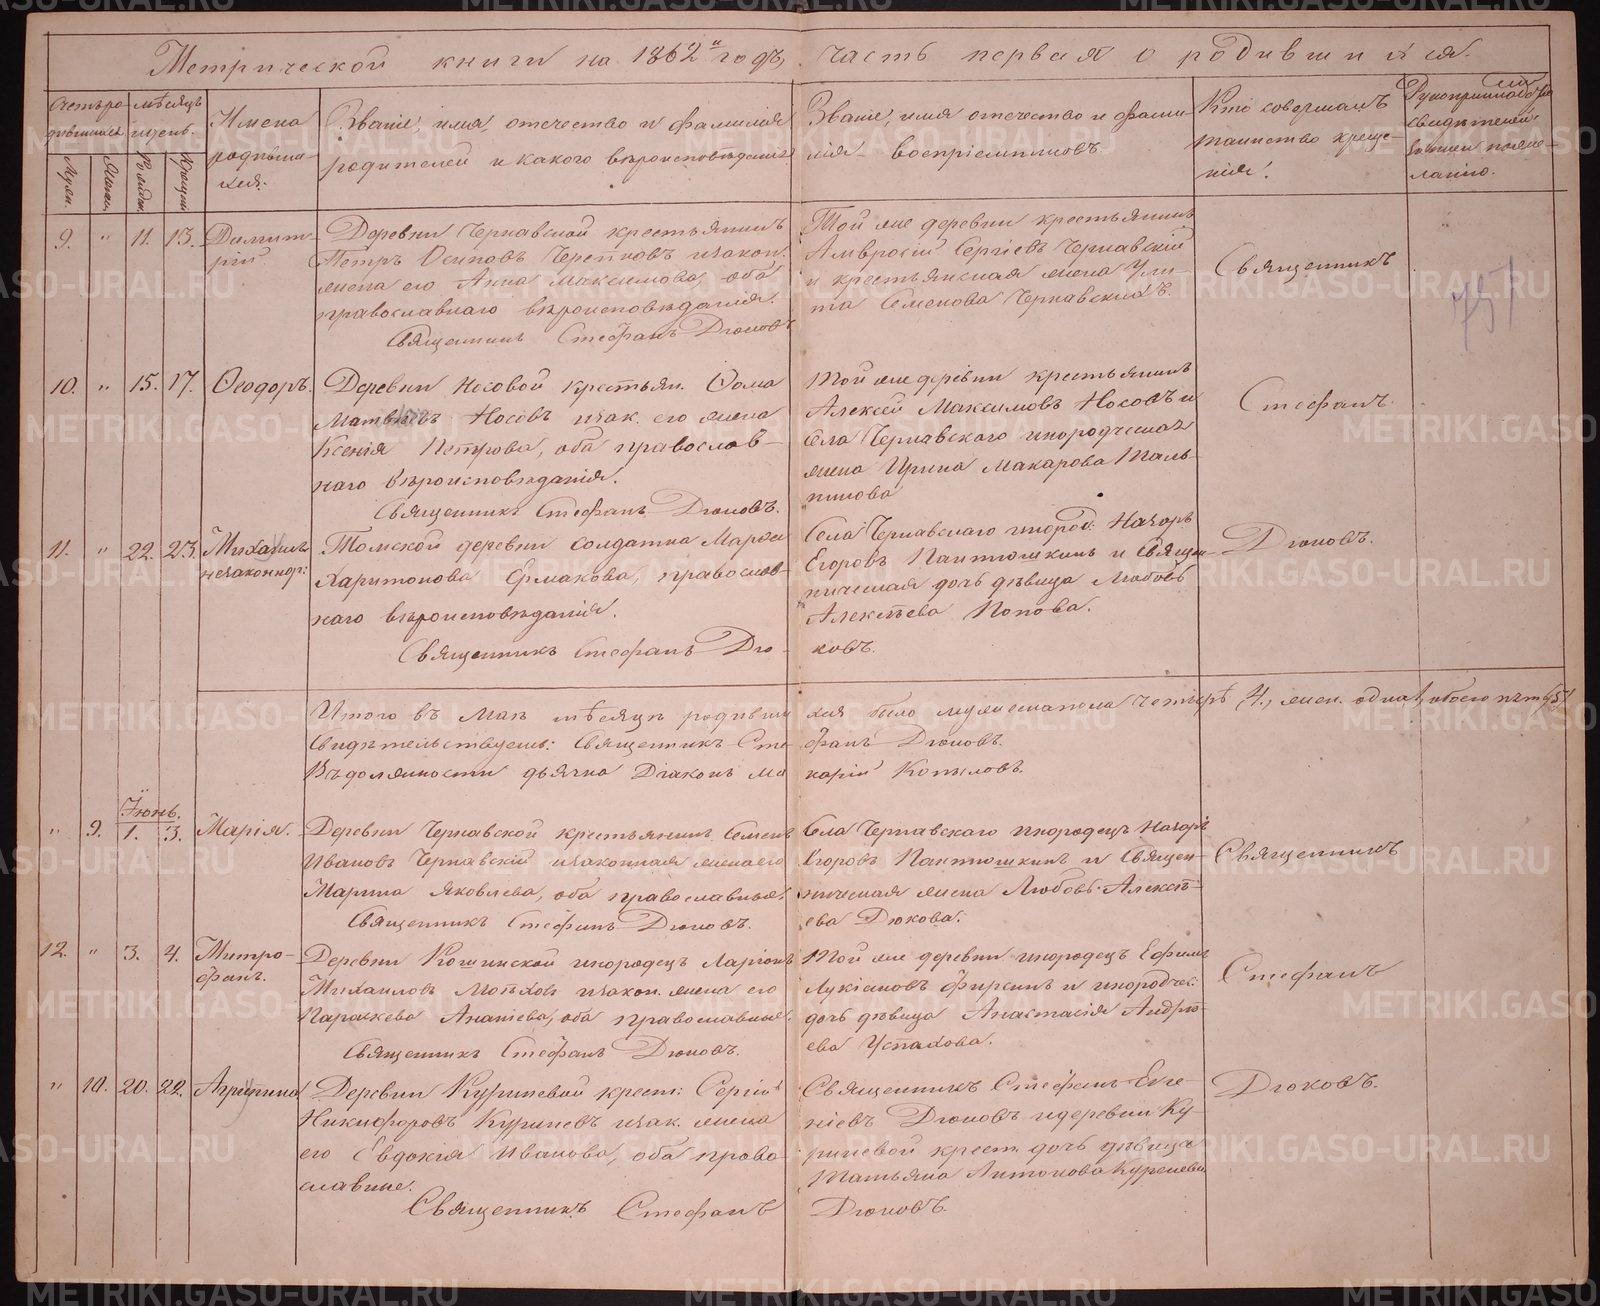 Метрической книги на 1862й годъ, часть первая о родившихся.
Счетъ ро-
дившихся
Муж.
Женс.
Мѣсяцъ
и день.
Рожд.
Крещен.
Имена
родивши-
хся.
Званіе, имя, отечество и фамилія
родителей и какого вѣроисповѣданія
Званіе, имя отечество и фами-
лія воспріемниковъ.
Кто совершалъ
таинство креще-
нія.
свидѣтелей
записи по же-
ланію.
9. " 11. 13. Димит-
рій
Деревни Чернавской крестьянинъ
Петръ Осиповъ Черепковъ и закон.
жена его Анна Максимова, оба
православнаго вѣроисповѣданія.
Священникъ Стефанъ Дюковъ
Той же деревни крестьянинъ
Амвросій Сергіевъ Чернавскій
и крестьянская жена Ули-
та Семенова Чернавскихъ.
Священникъ
10. " 15. 17. Ѳеодоръ.
Деревни Носовой крестьян. Ѳома
Матвѣевъ Носовъ и зак. его жена
Ксенія Петрова, оба православ-
наго вѣроисповѣданія.
Священникъ Стефанъ Дюковъ.
Той же деревни крестьянинъ
Алексѣй Максимовъ Носовъ и
села Чернавскаго инородческая
жена Ирина Макарова Паль-
никова
Стефанъ
11. " 22. 23. Михаилъ
незаконнор:
Томской деревни солдатка Марѳа
Харитонова Ермакова, православ-
наго вѣроисповѣданія.
Священникъ Стефанъ Дю-
ковъ.
Села Чернавскаго инород. Назаръ
Егоровъ Пантюшкинъ и Священ-
ническая дочь дѣвица Любовь
Алексѣева Попова.
Дюковъ.
Итого въ Маѣ мѣсяцѣ родивши-
хся было мужеска пола четыре /4., жен. одна 1, обоего пять /5/
Свидѣтельствуемъ: Священникъ Сте-
фанъ Дюковъ.
Въ должности дьячка Діаконъ Ма-
карій Копыловъ.
Іюнь.
" 9. 1. 3. Марія.
Деревни Чернавской крестьянинъ Семенъ
Ивановъ Чернавскій и законная жена его
Марина Яковлева, оба православные.
Священникъ Стефанъ Дюковъ.
Села Чернавскаго инородецъ Назаръ
Егоровъ Пантюшкинъ и Священ-
ническая жена Любовь Алексѣ-
ева Дюкова.
Священникъ
12. " 3. 4. Митро-
фанъ.
Деревни Кошинской инородецъ Ларіонъ
Михаиловъ и закон. жена его
Параскева Ананіева, оба православные.
Священникъ Стефанъ Дюковъ.
Той же деревни инородецъ Ефимъ
Лукіановъ Фирсинъ и инородчес.
дочь дѣвица Анастасія Андрѣ-
ева Успахова.
Стефанъ
" 10. 20. 22. Агрипина
Деревни Куриневой крест: Сергій
Никифоровъ Куриневъ и зак. жена
его Евдокія Иванова, оба право-
славные.
Священникъ Стефанъ
Дюковъ.
Священникъ Стефанъ Евге-
ніевъ Дюковъ и деревни Ку-
риневой крест. дочь дѣвица
Татьяна Антонова Куренева
Дюковъ.
METRIKI.GASO-URAL.RU